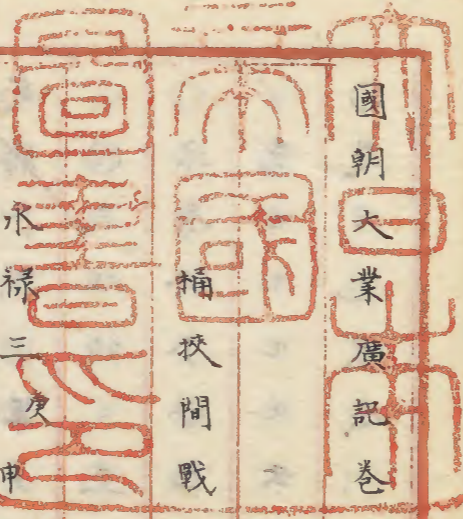 國朝大業廣記巻
桶挾間戰
永禄三庚申